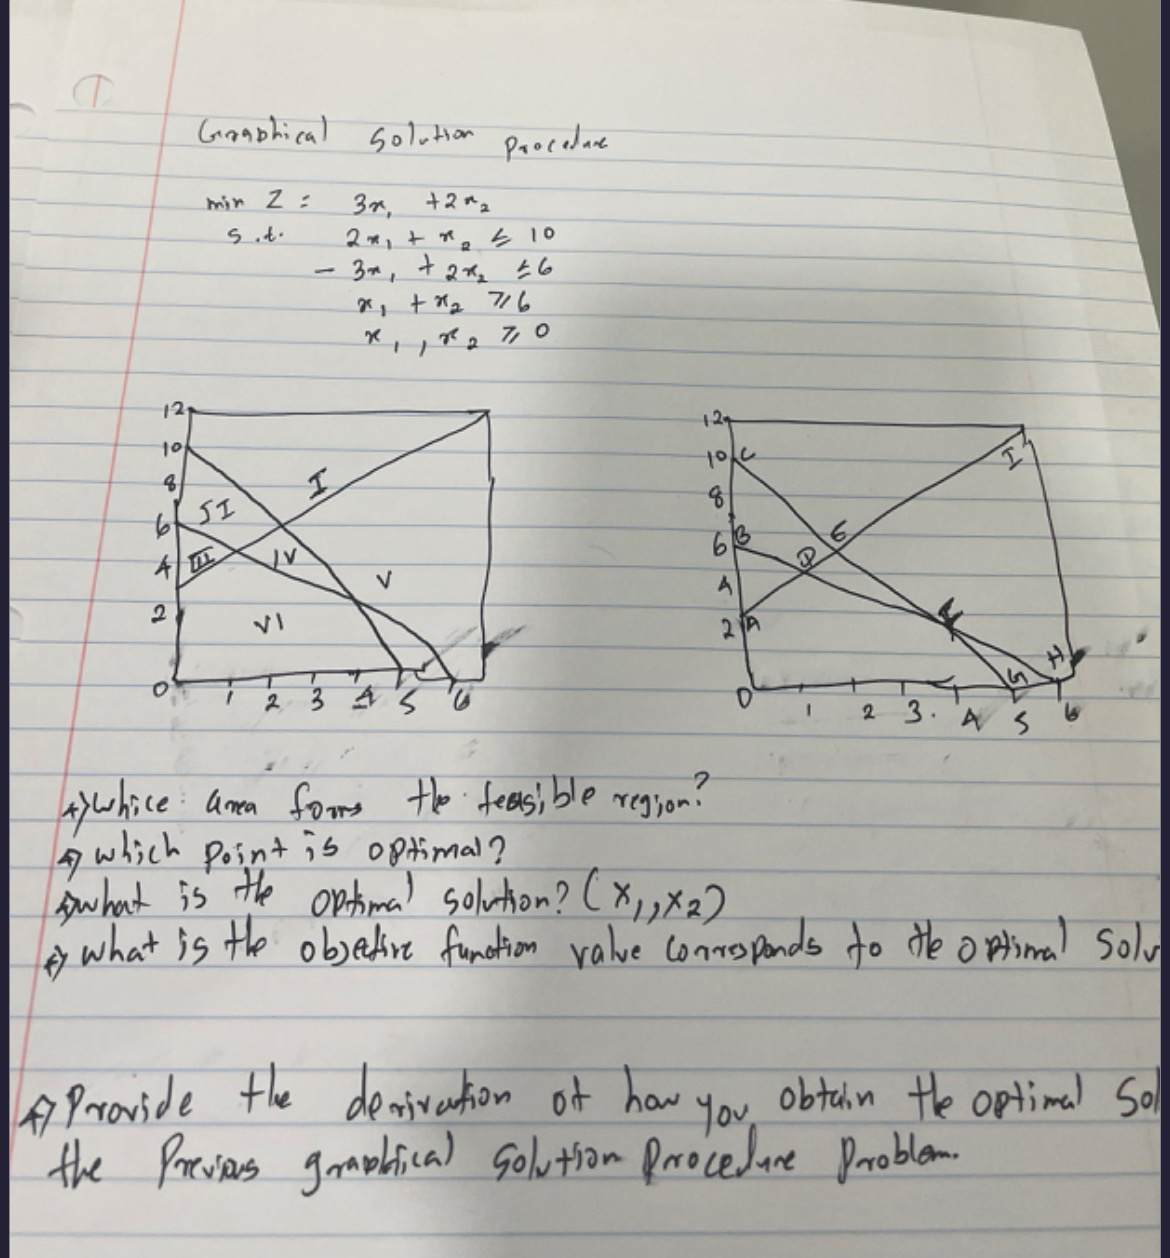 1
Graphical Solution Procedure
min Z = 3x₁ + 2x₂
s.t. 2x₁ + x₂ ≤ 10
- 3x₁ + 2x₂ ≤ 6
x₁ + x₂ ≥ 6
x₁, x₂ ≥ 0
12
10
8
6
4
2
0 1 2 3 4 5 6
I
II
III
IV
V
VI
12
10 C
8
6 B
4
2 A
0 1 2 3. 4 5 6
D
E
I
G
H
A) whice area forms the feasible region?
A) which point is optimal?
A) what is the optimal solution? (x₁, x₂)
A) what is the objective function value corresponds to the optimal Solu
A) Provide the derivation of how you obtain the optimal Sol
the Previous graphical Solution Procedure Problem.